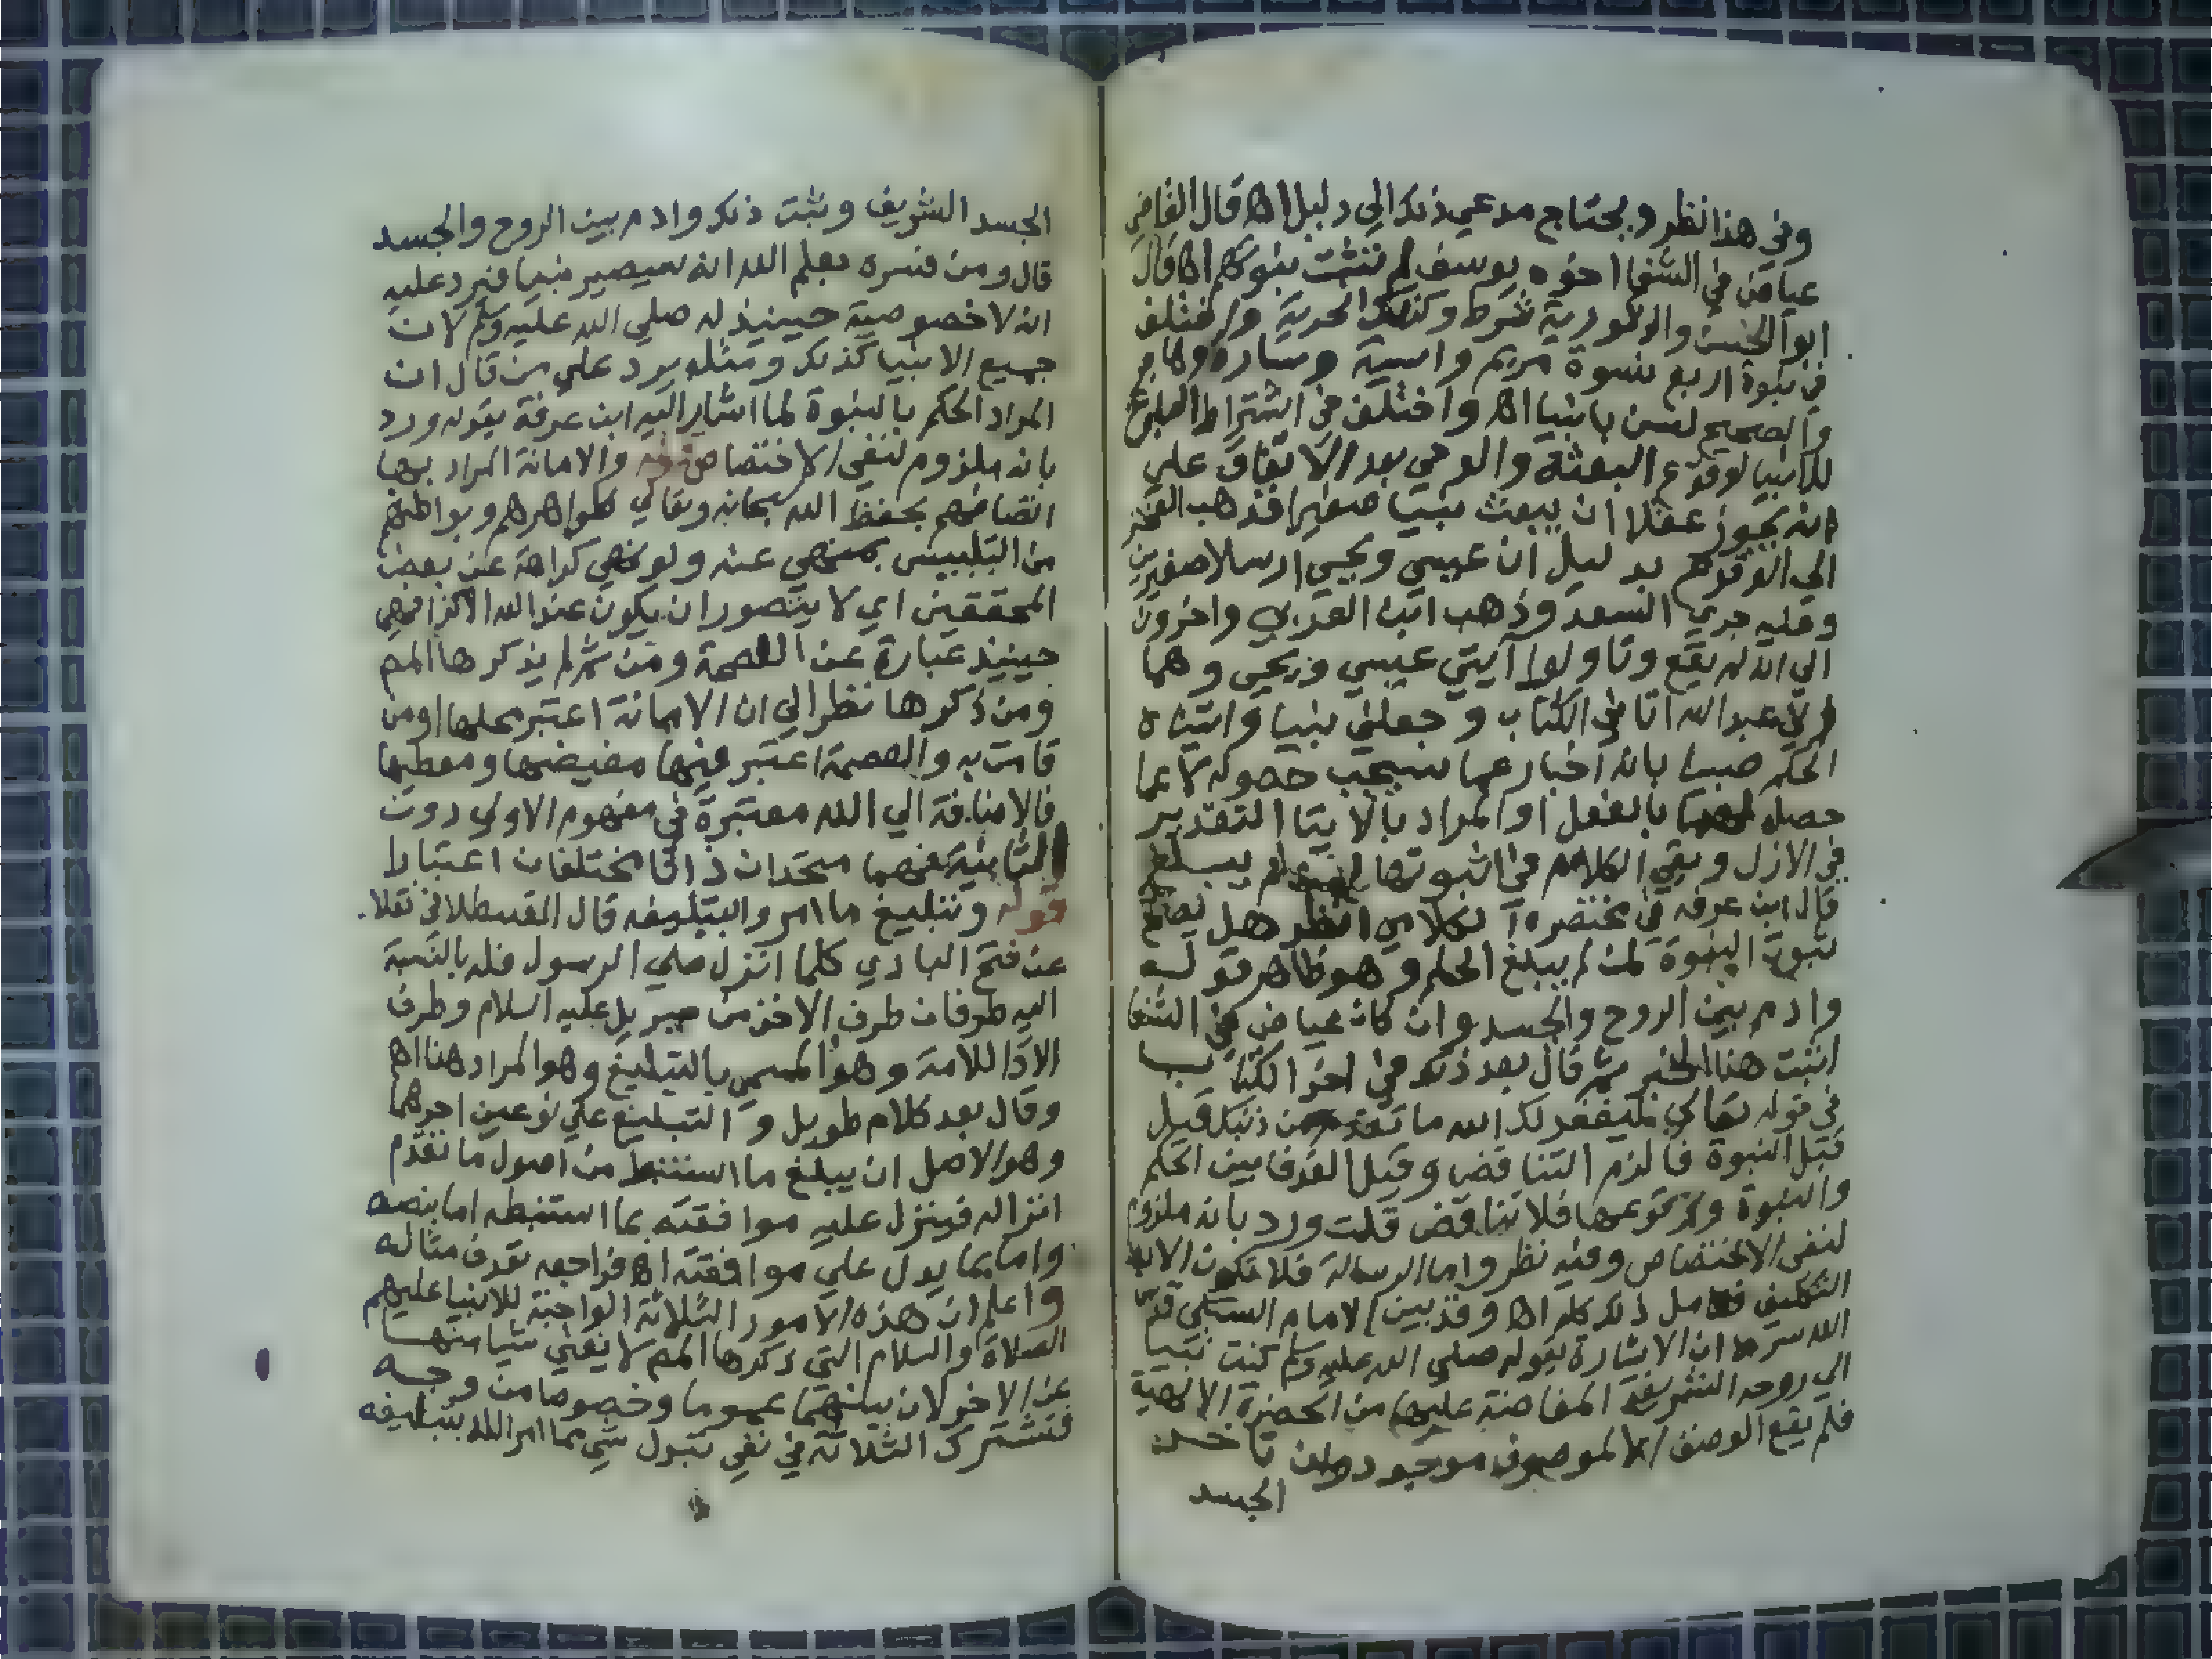 وفي هذا نظر ويحتاج مدعي ذلك الي دليل اه قال القاضي
عياض في الشفا اخوه يوسف لم تثبت نبوتهم اه قال
ابو الحسن والذكورية شرط وكذلك الحرية واختلف
في نبوة اربع نسوة مريم واسية وسارة وهاجر
والصحيح لسن بانبيا اه واختلف في اشتراط البلوغ
للانبيا لوقوع البعثة والوحي بعد الاتفاق على
انه يجوز عقلا ان يبعث نبيا صغيرا فذهب الفخر
الي الوقوع بدليل ان عيسي ويحيي ارسلا صغيرين
وعليه جري السعد وذهب ابن العربي واخرون
الي انه لم يقع وتاولوا آيتي عيسي ويحيي وهما
اني عبد الله اتاني الكتاب وجعلني نبيا واتيناه
الحكم صبيا بانه اخبار عما سيجب حصوله لا عما
حصل لهما بالفعل او المراد بالايتا التقدير
في الازل وبقي الكلام في ثبوتها لم يبلغ
قال ابن عرفه في مختصره الكلامي انظر هل يصح
ثبوت النبوة لمن لم يبلغ الحلم وهو ظاهر قوله
وادم بين الروح والجسد وان كان عياض في الشفا
اثبت هذا الخبر ثم قال بعد ذلك في اخر الكتاب
في قوله تعالي ليغفر لك الله ما تقدم من ذنبك قبل
قبل النبوة فالزم التناقض وقيل الفرق بين الحكم
والنبوة وقوعها فلا تناقض قلت ورد بانه ملزوم
لنفي الاختصاص وفيه نظر واما الرسالة فلا تكون الابعد
التكليف فتامل ذلك كله اه وقد بين الامام السبكي قدس
الله سره ان الاشارة بقوله صلي الله عليه وسلم كنت نبيا
الي روحه الشريفة المفاضة عليها من الحضرة الالهية
فلم يقع الوصف الا لموصوف موجود وان تاخر
الجسد
الجسد الشريف وثبت ذلك وادم بين الروح والجسد
قال ومن فسره بعلم الله انه سيصير نبيا فيرد عليه
انه لا خصوصية حينيذ له صلي الله عليه وسلم لان
جميع الانبيا كذلك ومثله يرد على من قال ان
المراد الحكم بالنبوة لما اشار اليه ابن عرفة بقوله ورد
بانه ملزوم لنفي الاختصاص قوله والامانة المراد بها
اتصافهم بحفظ الله سبحانه وتعالي ظواهرهم وبواطنهم
من التلبيس بمنهي عنه ولو نهي كراهة عن بعض
المحققين اي لا يتصور ان يكون عند الله الا كذا فهي
حينيذ عبارة عن العصمة ومن ثم لم يذكرها المص
ومن ذكرها نظر الي ان الامانة اعتبر محلها اومن
قامت به والعصمة اعتبر فيها مفيضها ومعطيها
فالاضافة الي الله معتبرة في مفهوم الاولي دون
الثانية فهما متحدان ذاتا مختلفان اعتبارا
قوله وتبليغ ما امروا بتبليغه قال القسطلاني نقلا
عن فتح الباري كلما انزل على الرسول فله بالنسبة
اليه طرفان طرف الاخذ من جبريل عليه السلام وطرف
الادا للامة وهو المسمي بالتبليغ وهو المراد هنا اه
وقال بعد كلام طويل والتبليغ على نوعين احدهما
وهو الاصل ان يبلغ ما استنبط من اصول ما تقدم
انزاله فينزل عليه موافقته بما استنبطه اما بنصه
واما بما يدل علي موافقته اه فراجعه تعرف مثاله
واعلم ان هذه الامور الثلاثة الواجبة للانبيا عليهم
الصلاة والسلام التي ذكرها المص لا يغني شيا منها
عن الاخر لان بينهما عموما وخصوصا من وجه
فتشترك الثلاثة في نفي تبديل شي مما امر الله بتبليغه